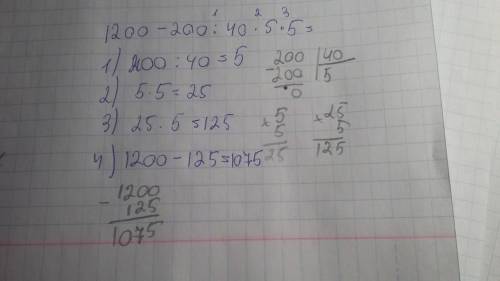 1 2 3
1200 - 200 : 40 · 5 · 5 =
1) 200 : 40 = 5
2) 5 · 5 = 25
3) 25 · 5 = 125
4) 1200 - 125 = 1075
- 200 | 40
200 | 5
0
× 5
5
25
× 25
5
125
- 1200
125
1075